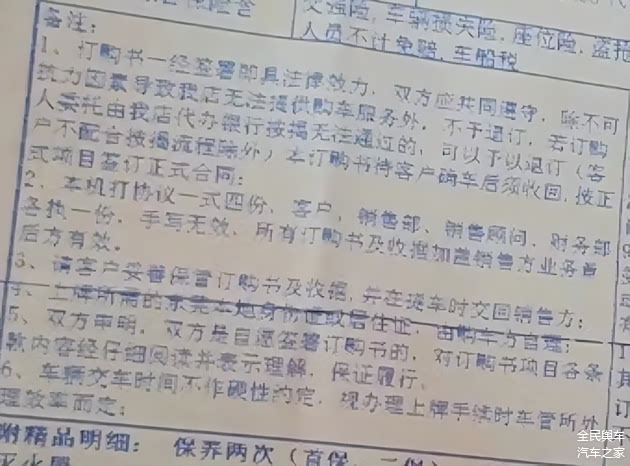 交强险, 车辆损失险, 座位险, 盗抢
人员不计免赔, 车船税
备注:
1、订购书一经签署即具法律效力, 双方应共同遵守, 除不可
抗力因素导致我店无法提供购车服务外, 不予退订, 若订购
人委托由我店代办银行按揭无法通过的, 可以予以退订 (客
户不配合按揭流程除外) 本订购书待客户确车后须收回, 按正
式项目签订正式合同;
2、本机打协议一式四份, 客户, 销售部、销售顾问, 财务部
各执一份, 手写无效, 所有订购书及收据加盖销售方业务章
后方有效。
3、请客户妥善保管订购书及收据, 并在提车时交回销售方;
4、上牌所需的东莞本地身份证或居住证, 由购车方自理;
5、双方申明, 双方是自愿签署订购书的, 对订购书项目各条
款内容经仔细阅读并表示理解, 保证履行。
6、车辆交车时间不作硬性约定, 视办理上牌手续时车管所办
理效率而定;
附精品明细: 保养两次 (首保、二保)
灭火器
全民舆车
汽车之家